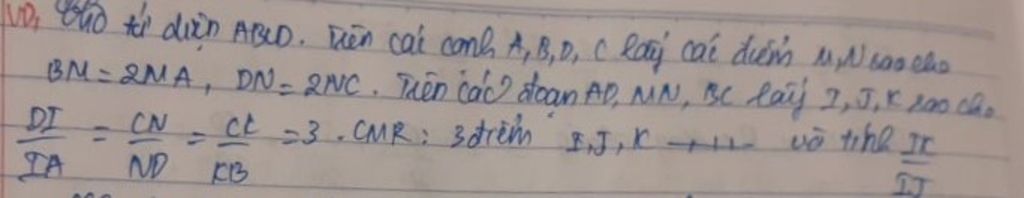 VD, Cho tứ diện ABCD. Trên các cạnh A,B,D,C lấy các điểm M,N sao cho
BM = 2MA, DN = 2NC. Trên các đoạn AD, MN, BC lấy I,J,K sao cho
DI/IA = CN/ND = CK/KB = 3. CMR: 3 điểm I,J,K ... và tính JK/IJ